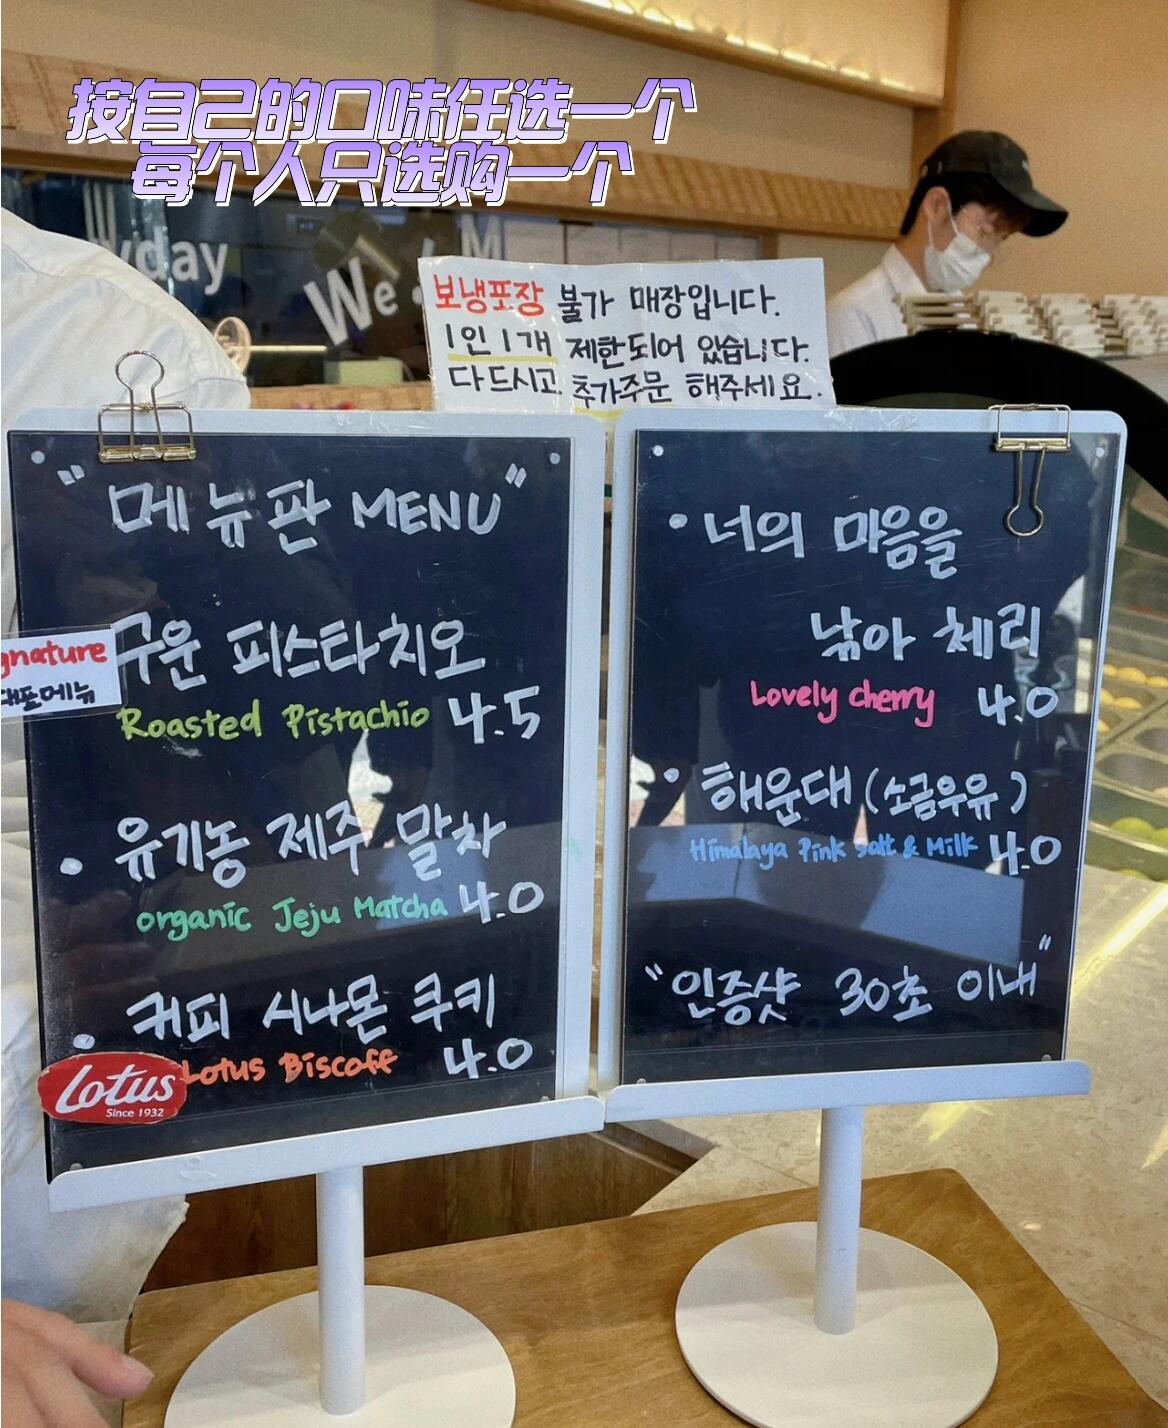 按自己的口味任选一个
每个人只选购一个
yday
We
M
보냉포장 불가 매장입니다.
1인 1개 제한되어 있습니다.
다 드시고 추가주문 해주세요.
"메뉴판 MENU"
gnature
대표메뉴
구운 피스타치오
Roasted Pistachio 4.5
• 유기농 제주 말차
organic Jeju Matcha 4.0
• 커피 시나몬 쿠키
Lotus Biscoff 4.0
Lotus
Since 1932
• 너의 마음을
낚아 체리
Lovely cherry 4.0
• 해운대 (소금우유)
Himalaya Pink salt & Milk 4.0
"인증샷 30초 이내"